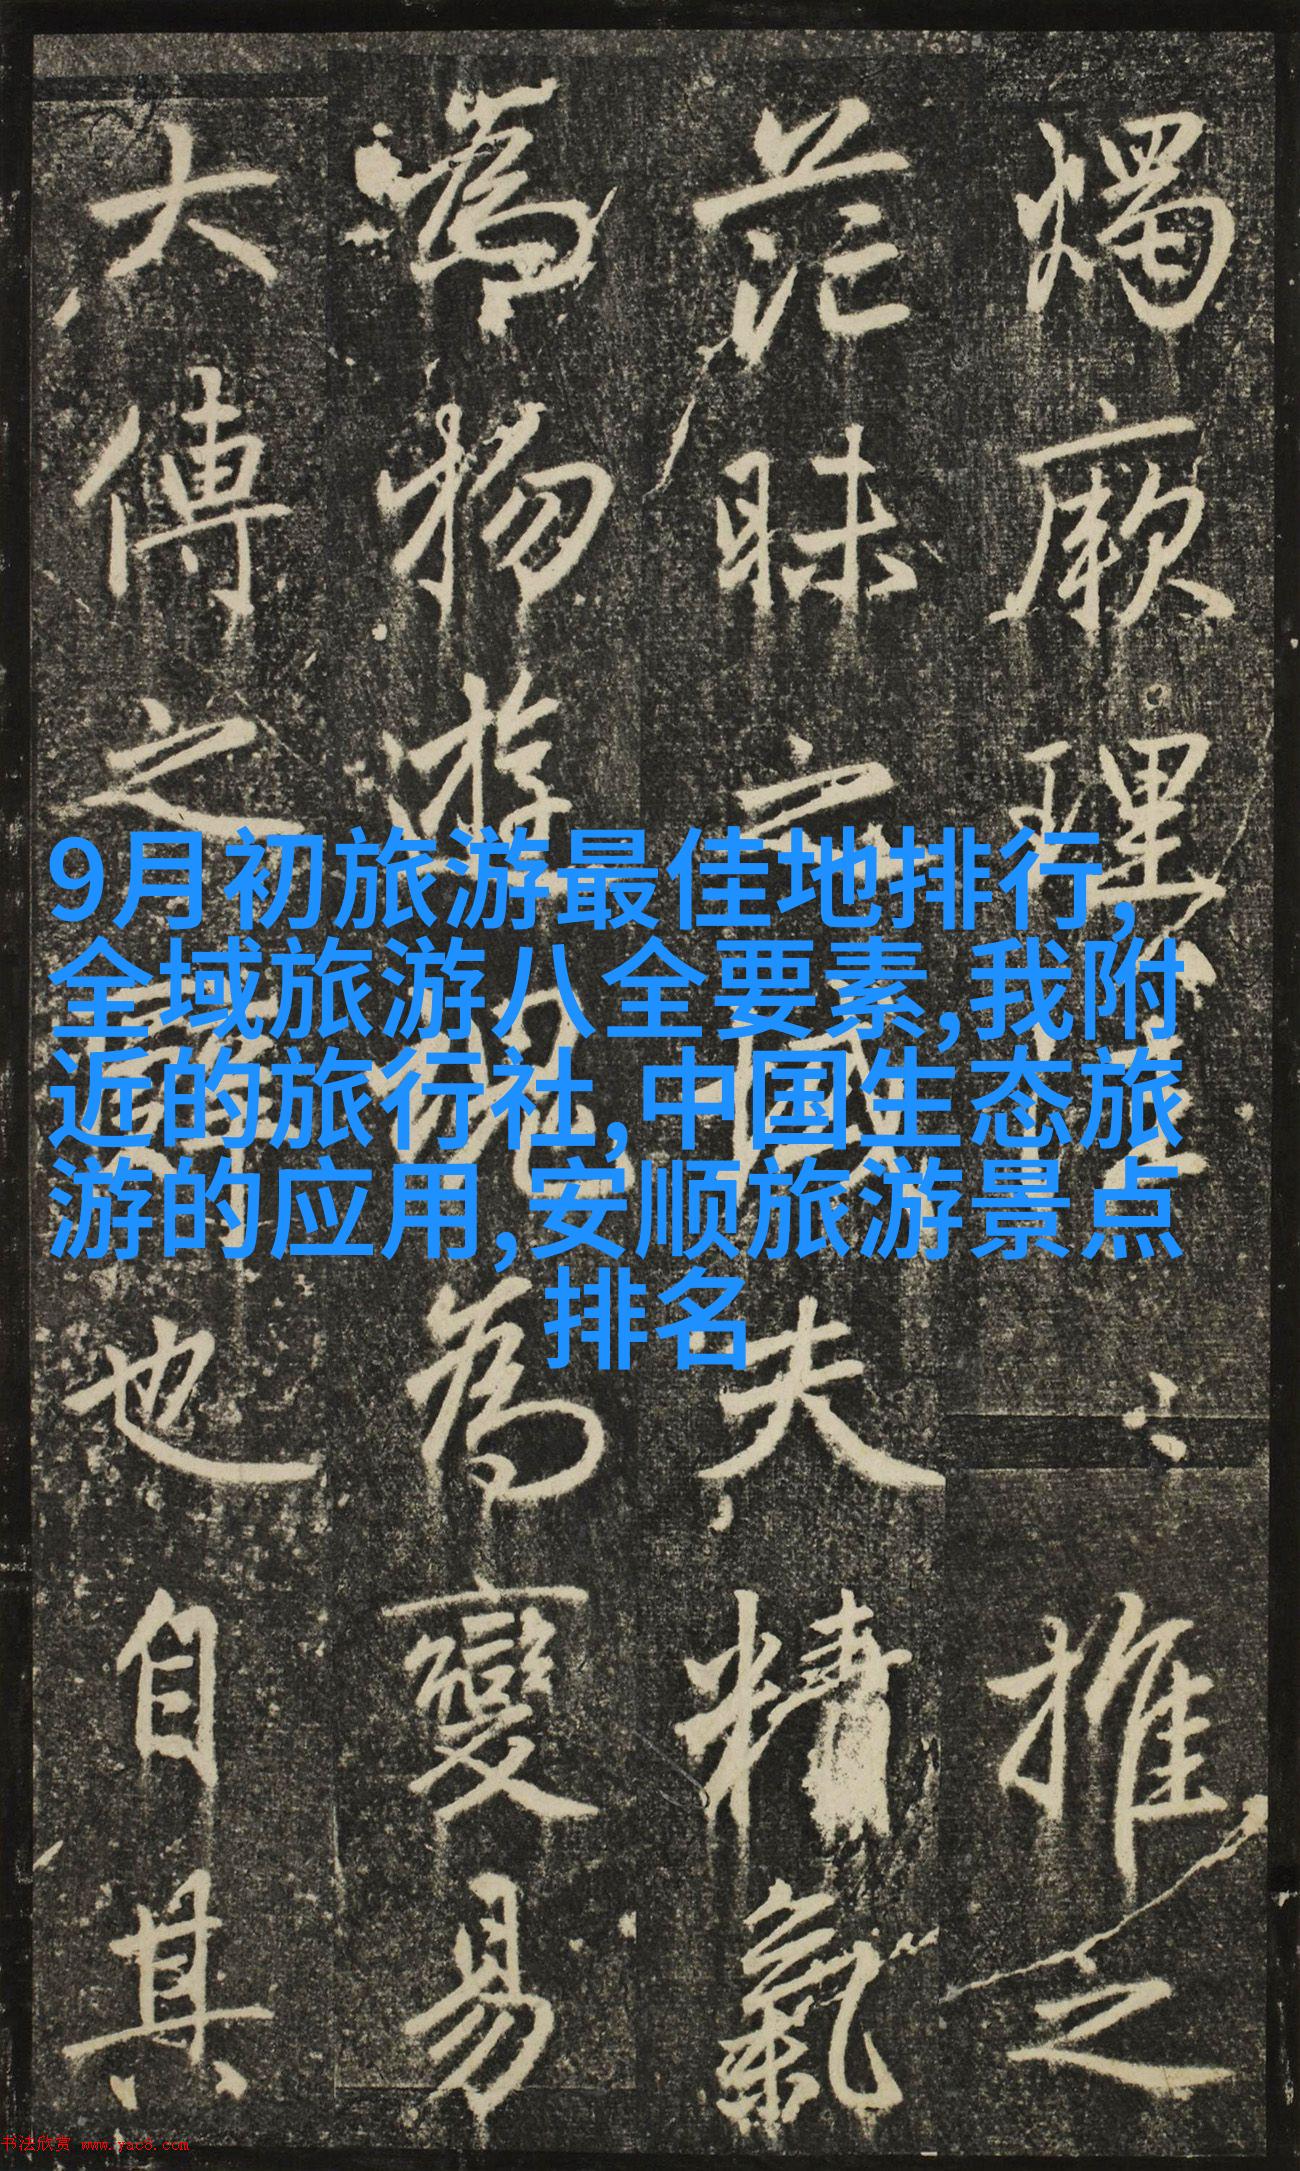 9月初旅游最佳地排行,
全域旅游八全要素,我附
近的旅行社,中国生态旅
游的应用,安顺旅游景点
排名
燭厥理推之
茫昧夫精氣
為物遊魂為變易
大傳之辭也自其
书法欣赏 www.yac8.com